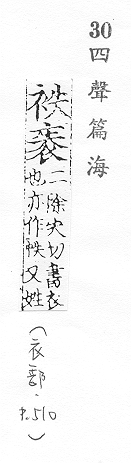 30
四聲篇海
袟袠
二除失切書衣
也亦作帙又姓
(衣部.P.510)